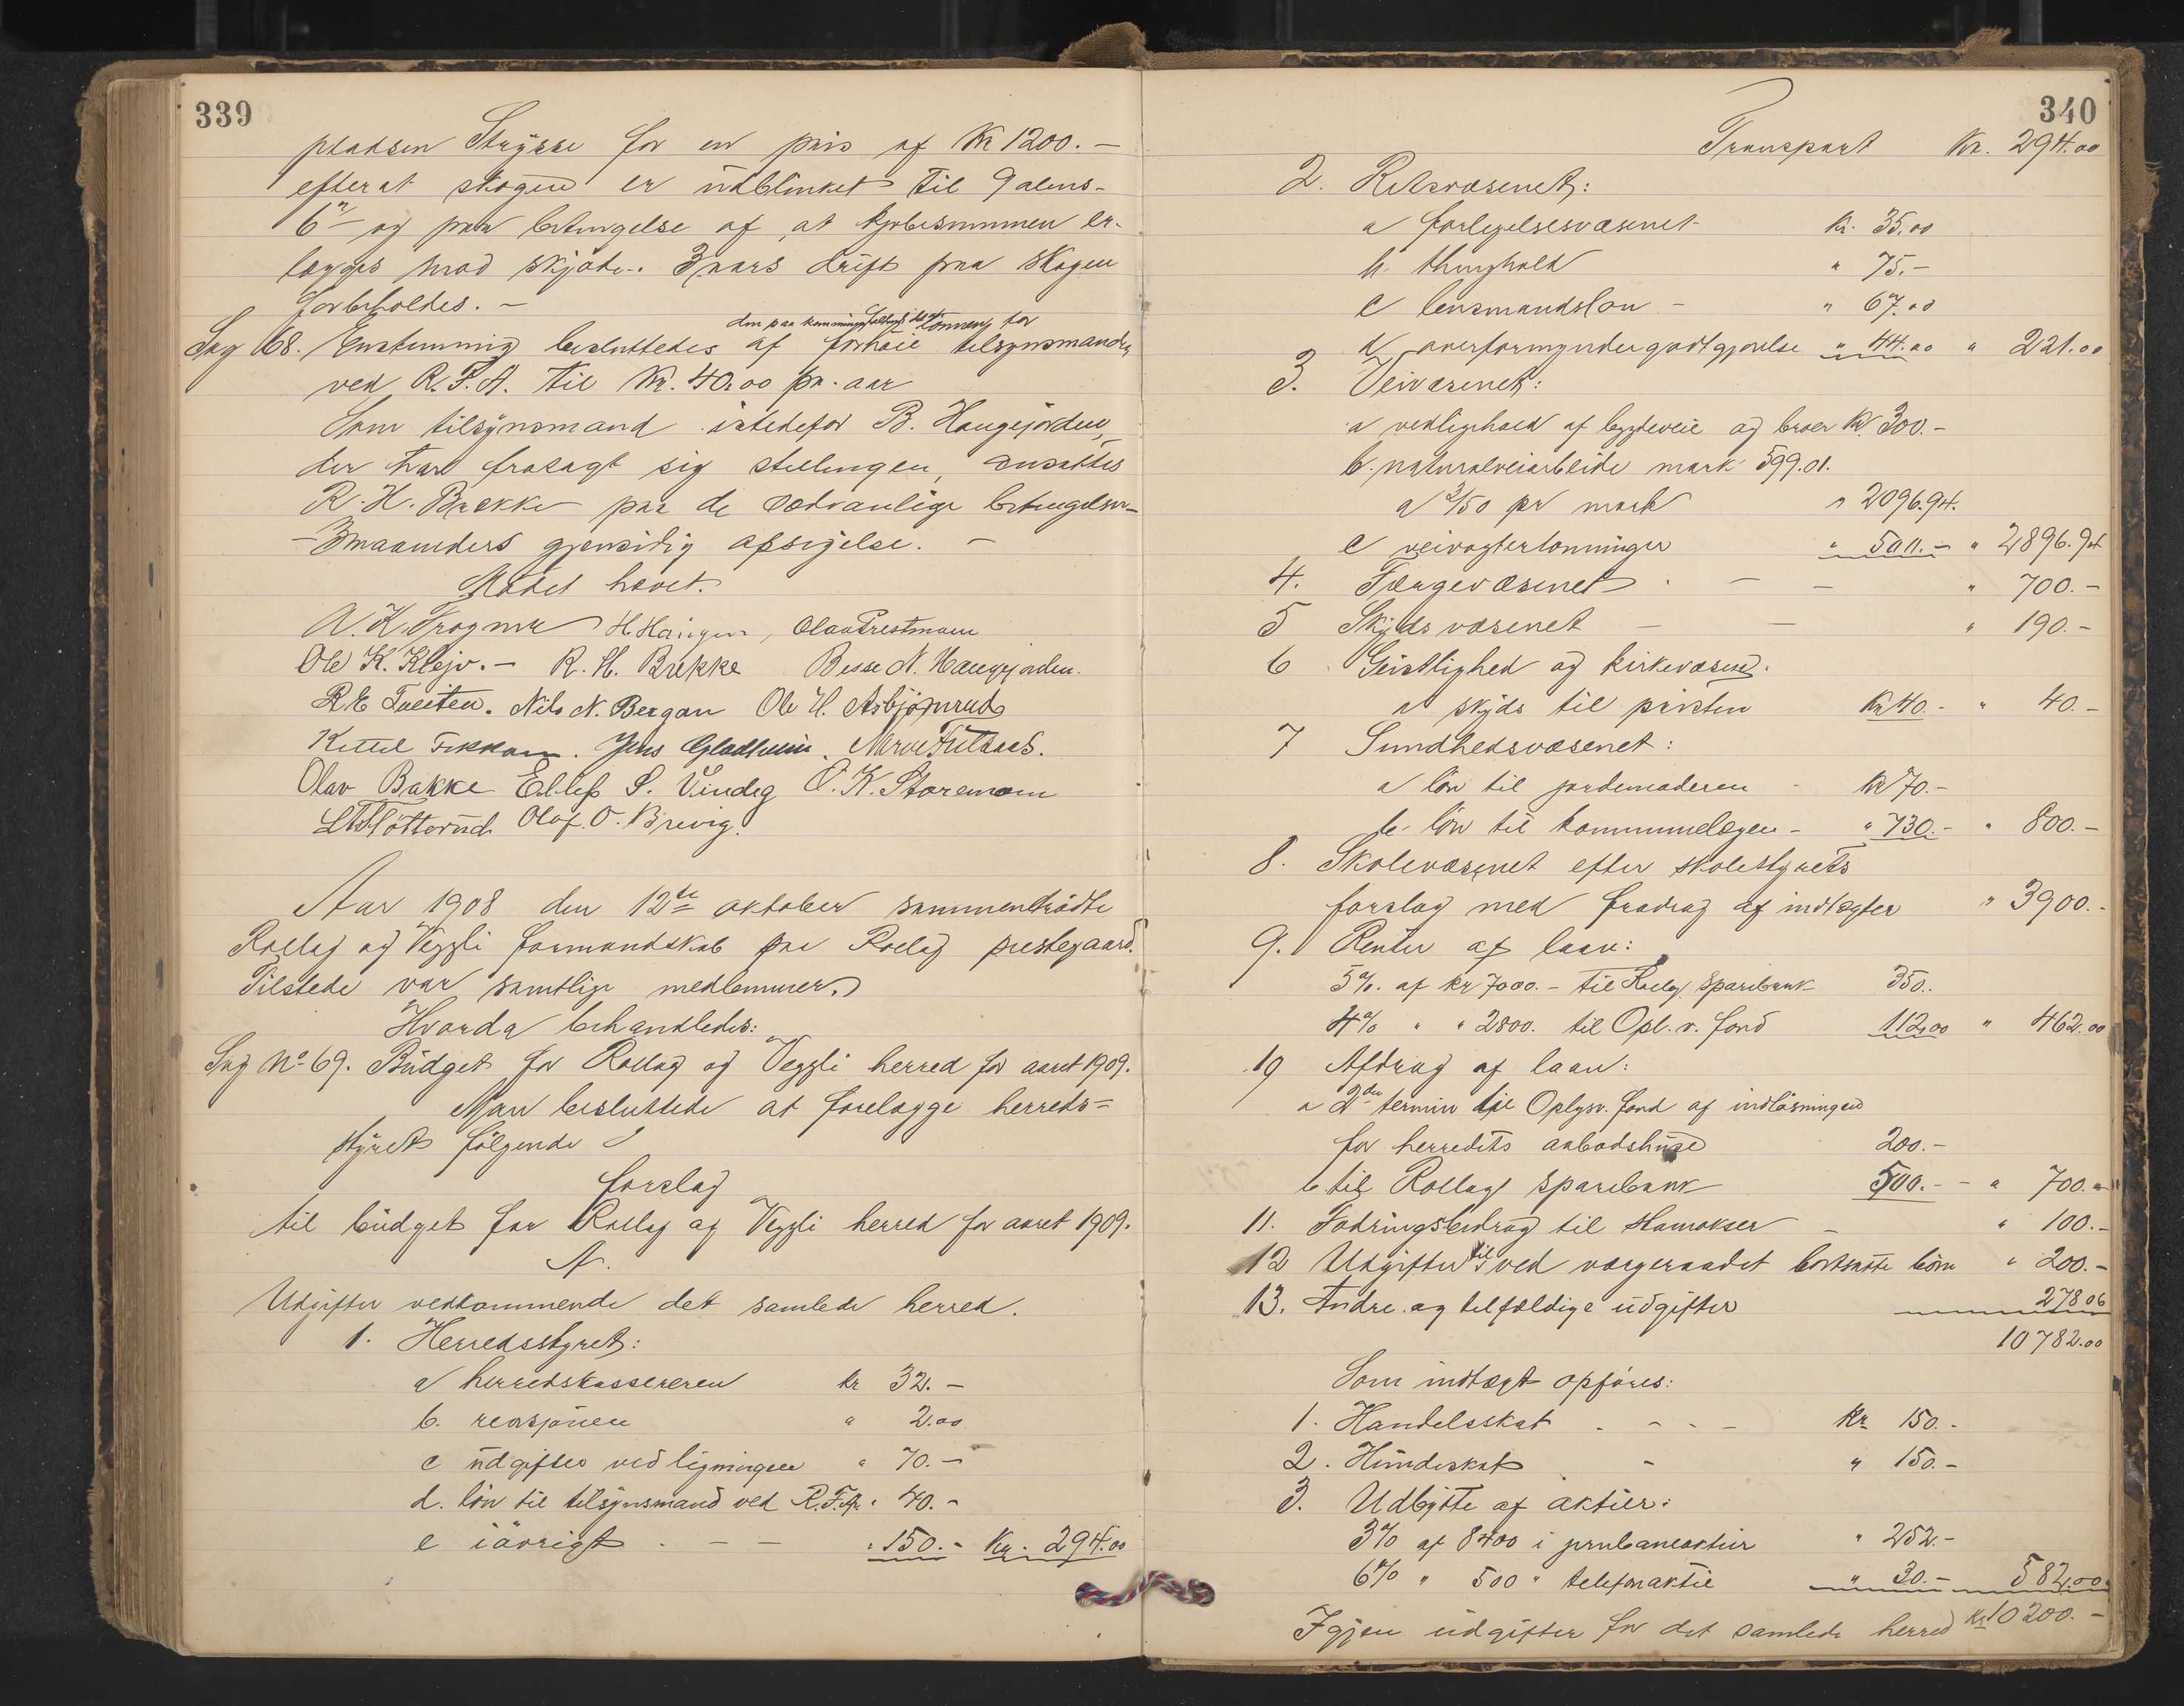 339
pladsen Strysse for en pris af Kr 1200.—
efterat skogen er udblinket til 9 alens-
6" og paa betingelse af, at kjøbesummen er-
lægges mod skjøde. 3 aars drift paa skogen
forbeholdes. —
den paa kommunen faldende del af lønnen for
Sag 68. Enstemmig besluttedes at forhøie tilsynsmanden
ved R.F.A. til Kr. 40.00 pr. aar
Som tilsynsmand istedefor B. Haugejorden,
der har frasagt sig stillingen, ansattes
R. H. Brække paa de sedvanlige betingelser—
— 3 maaneders gjensidig opsigelse. —
Mødet hævet.
N. K. Trogna H. Haugen, Olav Prestmoen
Ole K. Klejv. — R. H. Brekke Besse N. Haugejorden.
R E Tveiten. Nils N. Bergan Ole H. Asbjørnrud
Kittil Fekkan. Jens Gladheim. Narve Fulsaas.
Olav Bakke Ellef S. Vindeg O. K. Storemoen
Olaf O. Brevig.
Aar 1908 den 12te oktober sammentrådte
Rollag og Veggli formandskab paa Rollag prestegaard.
Tilstede var samtlige medlemmer.
Hvorda behandledes:
Sag No 69. Budget for Rollag og Veggli herred for aaret 1909.
Man besluttede at forelægge herreds=
styret følgende
forslag
til budget for Rollag og Veggli herred for aaret 1909.
A.
Udgifter vedkommende det samlede herred.
1. Herredsstyret:
a herredskassereren kr 32.—
b. revisjonen " 2.00
c udgifter ved ligningen " 70.—
d. løn til tilsynsmand ved R.F.A. " 40.—
e iøvrigt . — — " 150.— Kr. 294.00
340
Transport Kr. 294.00
2. Retsvæsenet:
a forligelsesvæsenet Kr. 35.00
b. thinghold " 75.—
c lensmandsløn — " 67.00
d overformyndergodtgjørelse " 44.00 " 221.00
3. Veivæsenet:
a vedligehold af bygdeveie og broer Kr. 300.—
b. naturalveiarbeide mark 599.01.
a 3/50 pr mark " 2096.94.
c veivogterlønninger " 500.— " 2896.94
4. Færgevæsenet . — — " 700.—
5 Skydsvæsenet — — " 190.—
6 Geistlighed og kirkevæsen.
a skyds til presten Kr 40.— " 40.—
7 Sundhedsvæsenet:
a løn til jordemoderen - Kr 70.—
b. løn til kommunelægen — " 730.— " 800.—
8. Skolevæsenet efter skolestyrets
forslag med fradrag af indtægter " 3900.-
9. Renter af laan:
5%. af kr 7000.— til Rollag sparebank 350..
4% " " 2800. til Opl. v. fond 112.00 " 462.00
10 Afdrag af laan:
a 2den termin til Oplysn. fond af indløsningen
for herredets aabodshuse 200.—
b til Rollag sparebank 500.— — " 700.—
11. Fodringsbidrag til stamokser — " 100.—
12 Udgifter til ved værgeraadet bortsatte børn " 200.—
13. Andre og tilfældige udgifter 278.06
10782.00
Som indtægt opføres:
1. Handelsskat . - - — Kr 150.-
2. Hundeskat - " 150.—
3. Udbytte af aktier:
3% af 8400 i jernbaneaktier " 252.—
6% " 500 " telefonaktie " 30.— 582.00
Igjen udgifter for det samlede herred Kr 10200.—